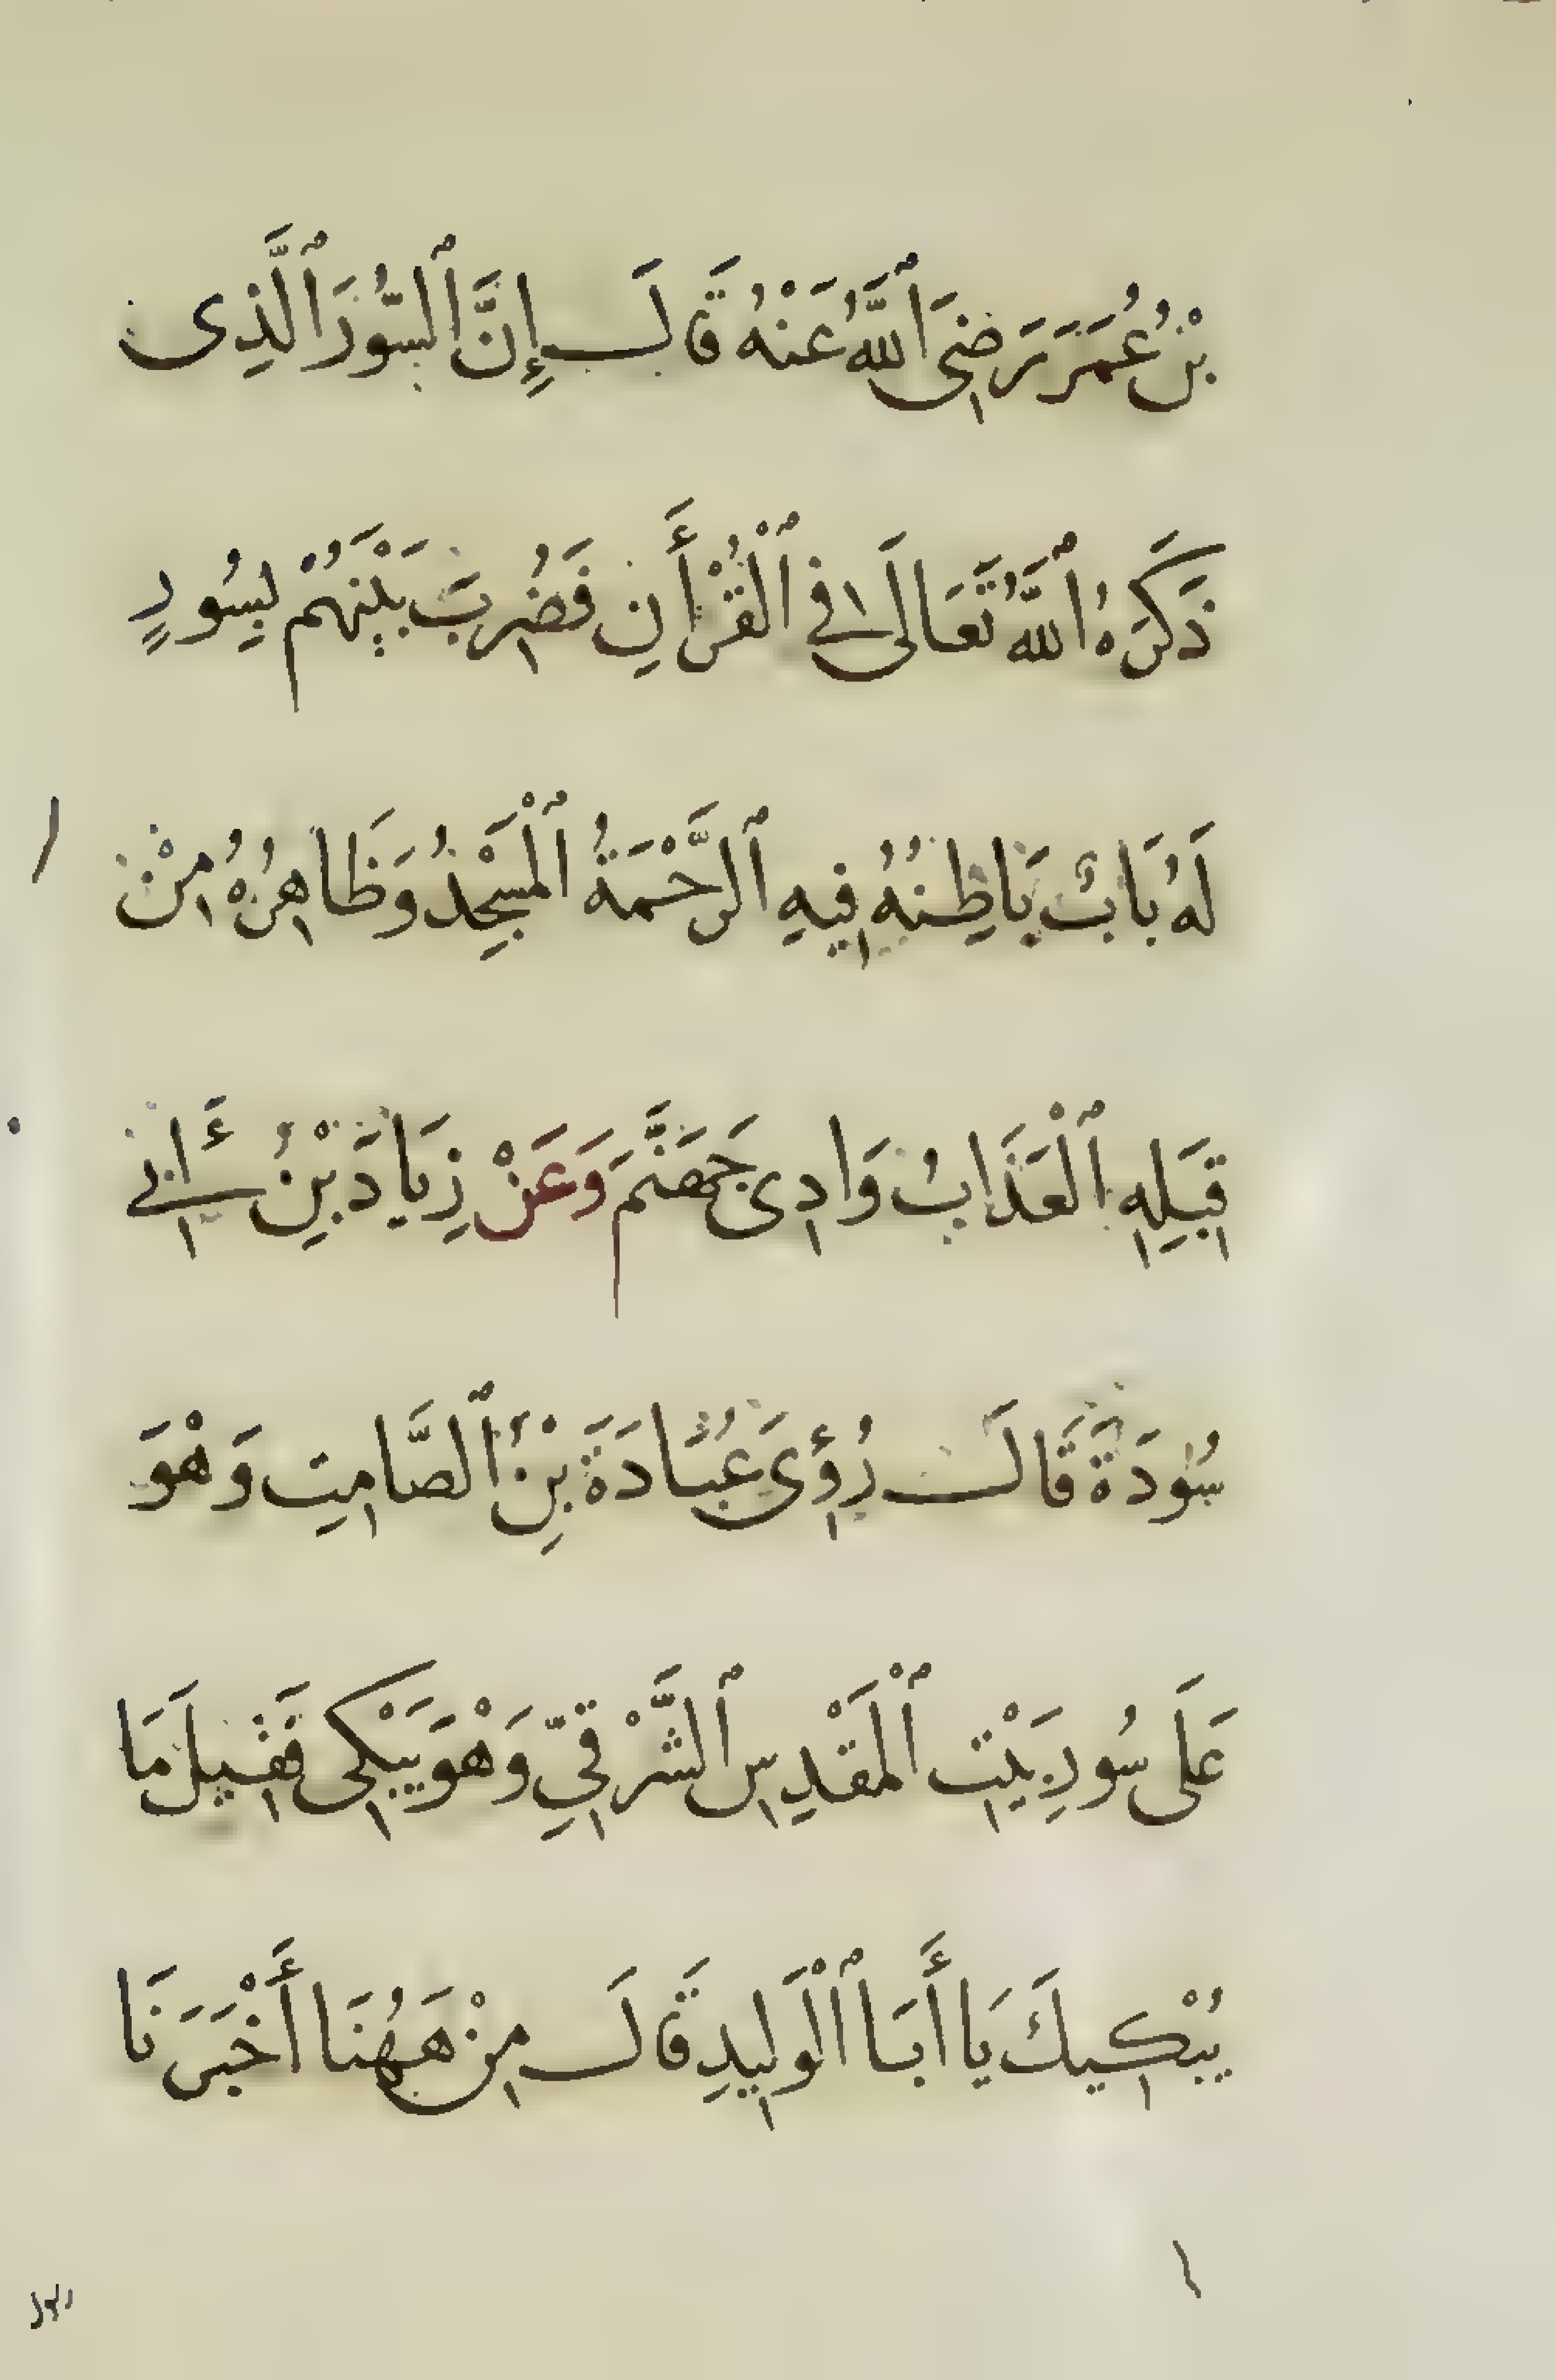 بْنُ عُمَرَ رَضِيَ ٱللَّهُ عَنْهُ قَالَ إِنَّ ٱلسُّورَ ٱلَّذِى
ذَكَرَهُ ٱللَّهُ تَعَالَى فِي ٱلْقُرْأَنِ فَضُرِبَ بَيْنَهُمْ بِسُورٍ
لَهُ بَابٌ بَاطِنُهُ فِيهِ ٱلرَّحْمَةُ ٱلْمَسْجِدُ وَظَاهِرُهُ مِنْ
قِبَلِهِ ٱلْعَذَابُ وَادِى جَهَنَّمَ وَعَنْ زِيَادَ بْنِ أَبِي
سُودَةَ قَالَ رُؤِىَ عُبَادَةَ بْنِ ٱلصَّامِتِ وَهْوَ
عَلَى سُورِ بَيْتِ ٱلْمَقْدِسِ ٱلشَّرْقِيِّ وَهْوَ يَبْكِى فَقِيلَ مَا
يُبْكِيكَ يَا أَبَا ٱلْوَلِيدِ قَالَ مِنْ هَهُنَا أَخْبَرَنَا
رسول